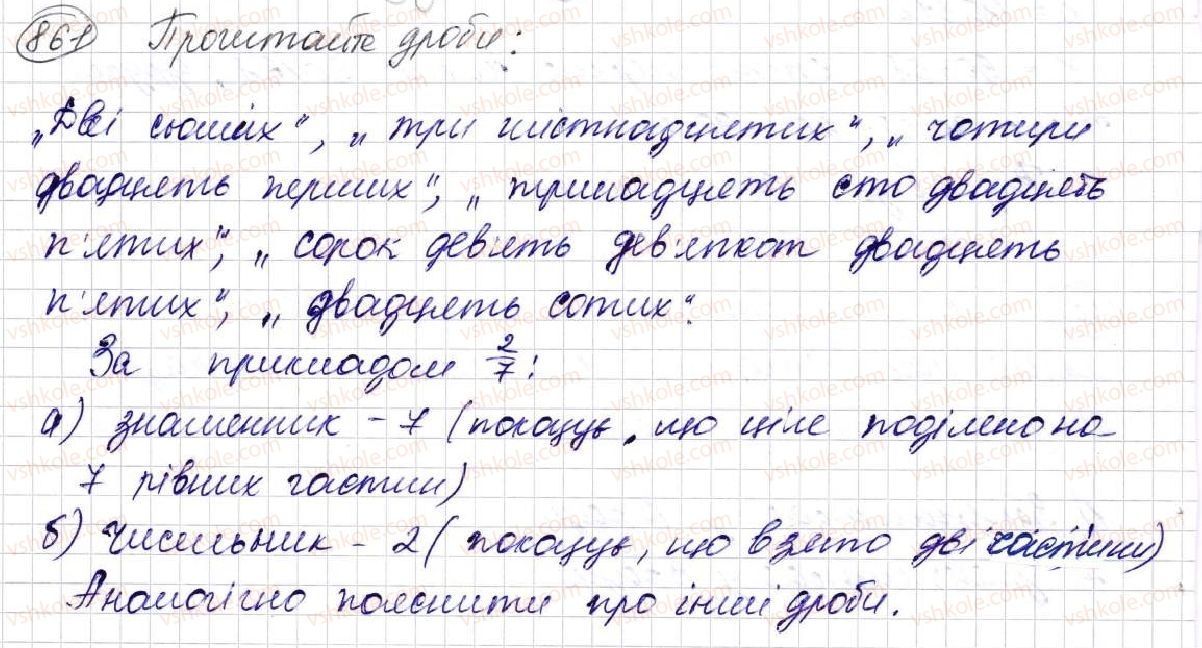 861 Прочитайте дроби:
„Дві сьомих", „три шістнадцятих", „чотири
двадцять перших", „тринадцять сто двадцять
п'ятих", „сорок дев'ять дев'ятсот двадцять
п'ятих", „двадцять сотих".
За прикладом 2/7:
а) знаменник – 7 (показує, що ціле поділено на
7 рівних частин)
б) чисельник – 2 (показує, що взято дві частини)
Аналогічно пояснити про інші дроби.